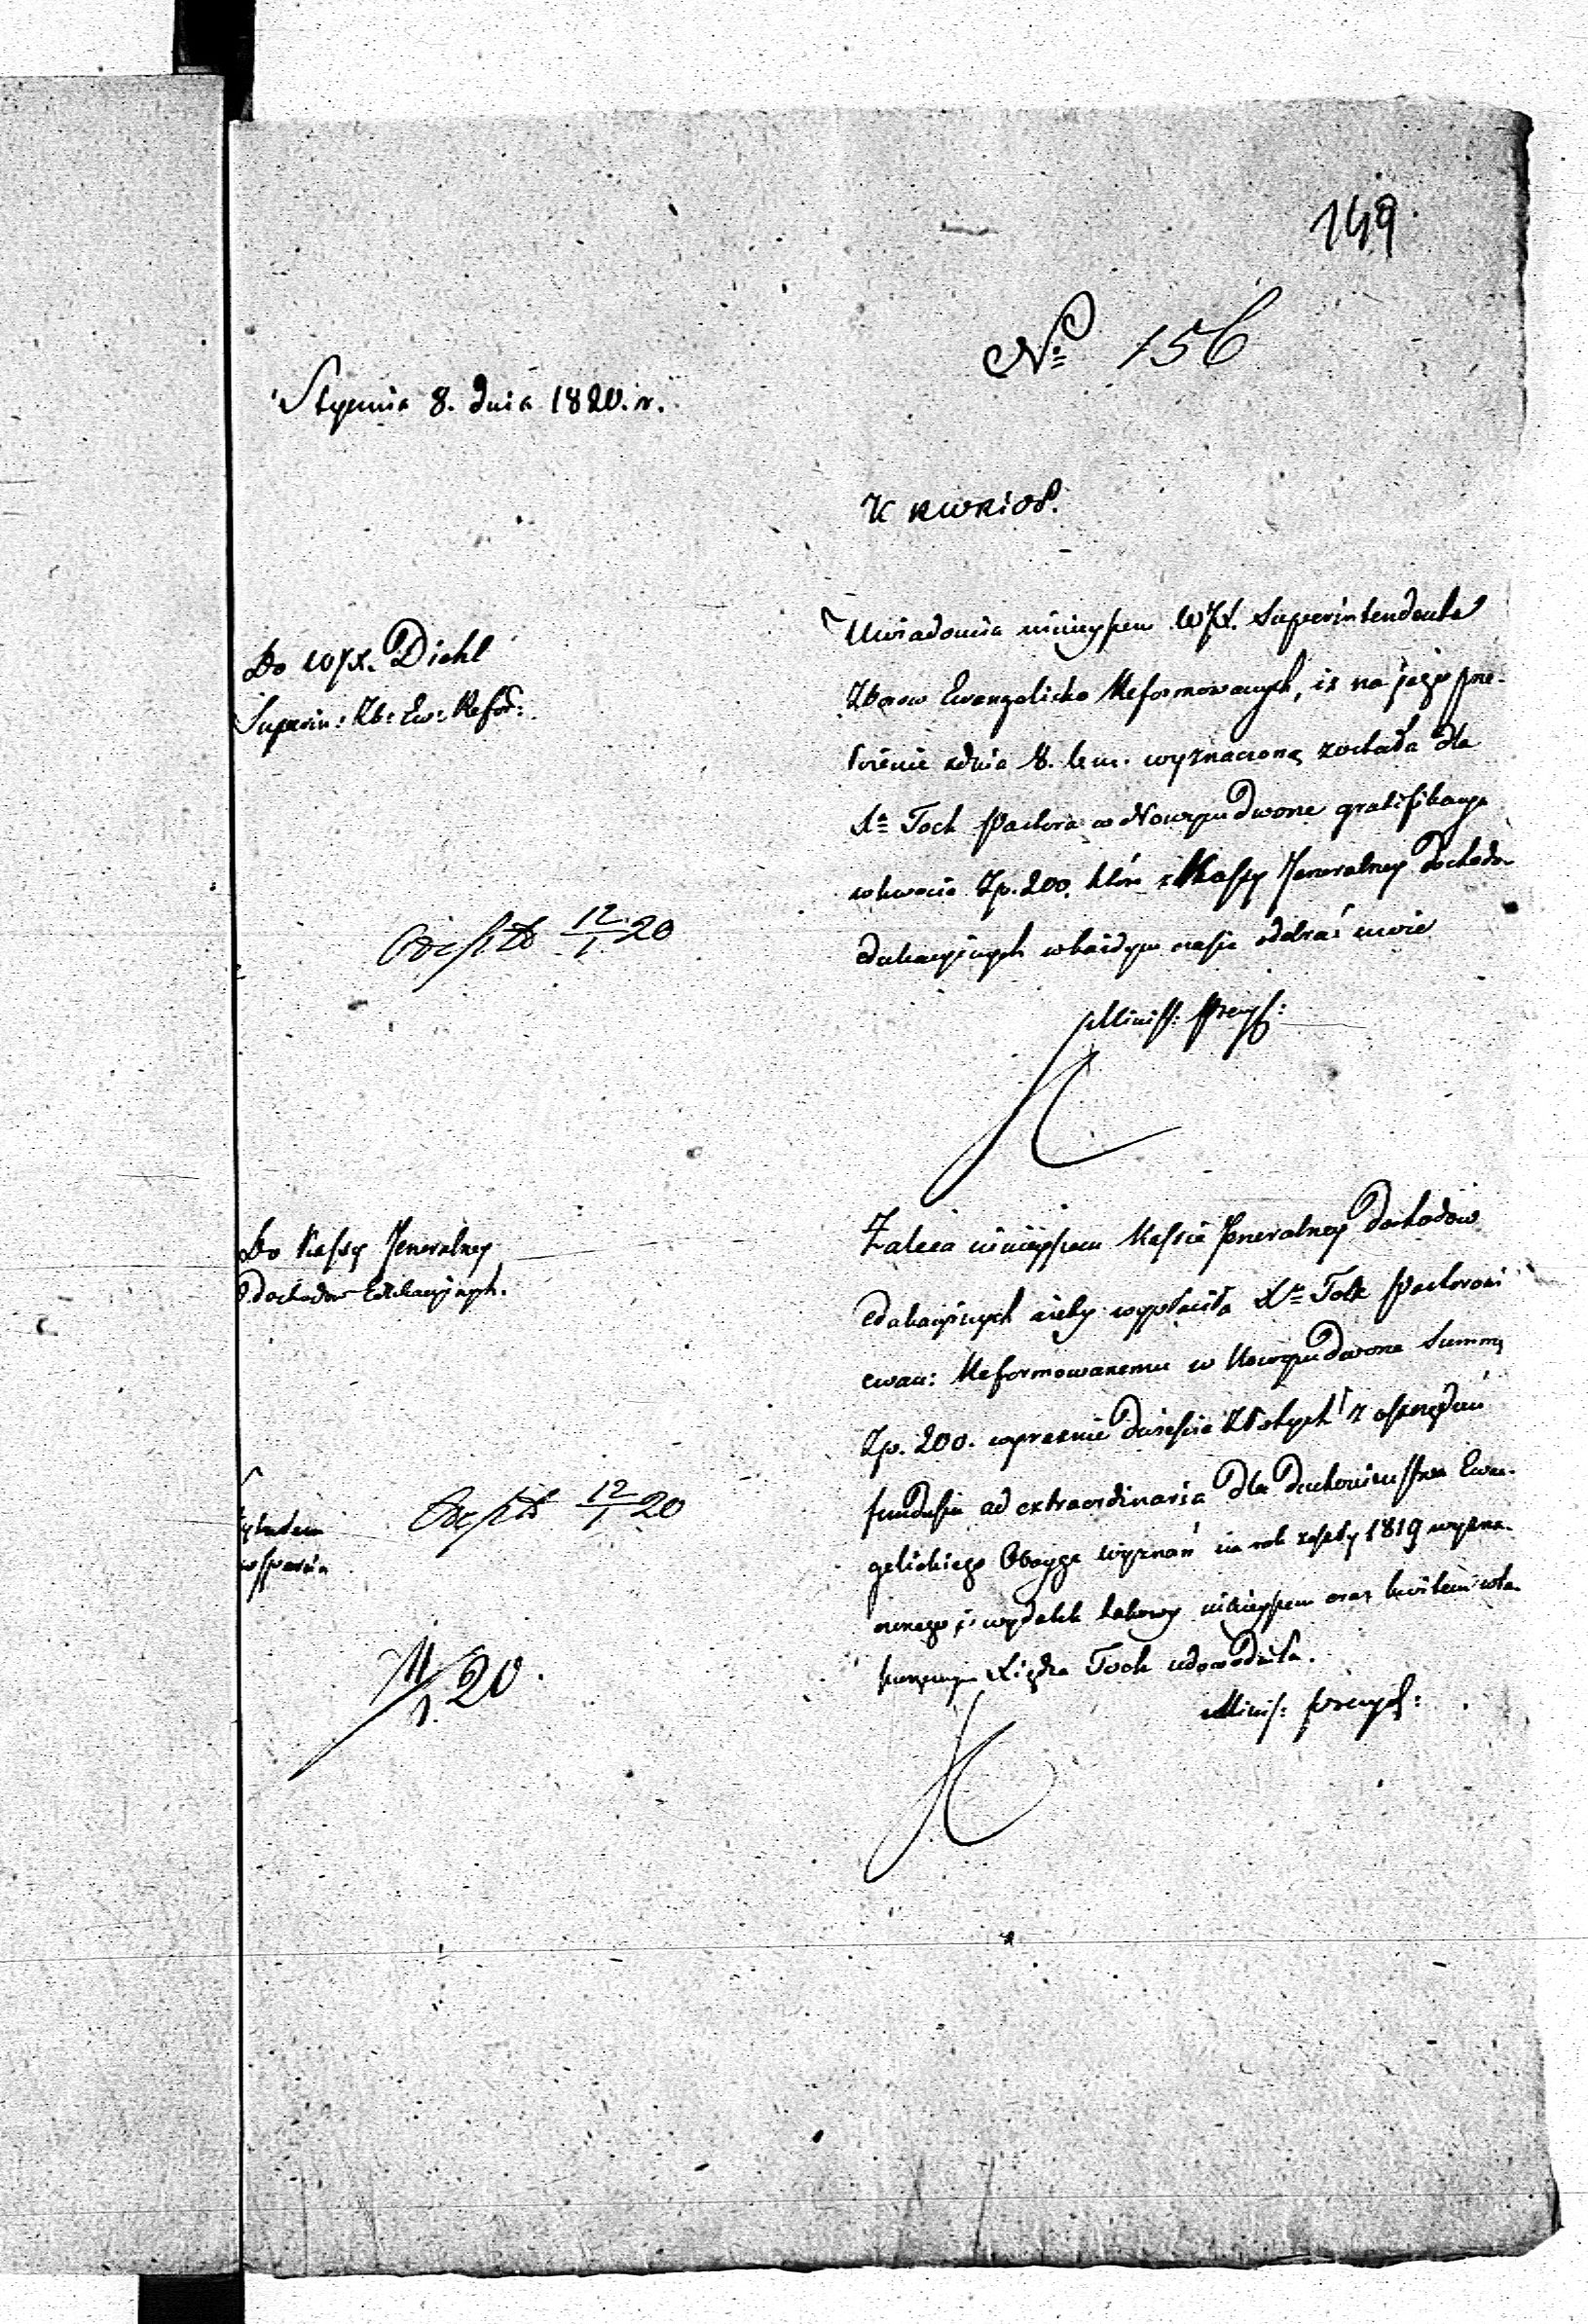 149
No 156
Stycznia 8. dnia 1820. r.
Do WJX. Diehl
Superin: Zb: Ew: Refor:
Uwiadomia niniejszem WJX. Superintendenta
Zborow Ewangelicko Reformowanych, iż na jego prze-
łożenie z dnia 8. b. m. wyznaczoną została dla
Xa Toch Pastora w Nowym dworze gratifikacya
w kwocie Zp. 200. które z Kassy Jeneralney Dochodow
edukacyinych w każdym czasie odebrać może
Odesłto 12/1 20
Minist: Prezyd:
Do Kassy Jeneralney
Dochodow Edukacyjnych.
Zaleca niniejszem Kassie Jeneralney Dochodow
edukacyinych ażeby wypłaciła Xu Tolk Pastorowi
ewan: Reformowanemu w Nowym dworze Summę
Zp. 200. wyraznie dwieście Złotych z
funduszu ad extraordinaria dla duchowieństwa Ewan-
gelickiego Oboyga wyznań na rok zeszły 1819 wyzna-
czonego, i wydatek takowy niniejszem oraz kwitem
Xiędza Toch udowodniła.
tytułem
wsparcia
Odesłto 12/1 20
11/1. 20.
Minis: Prezyd: